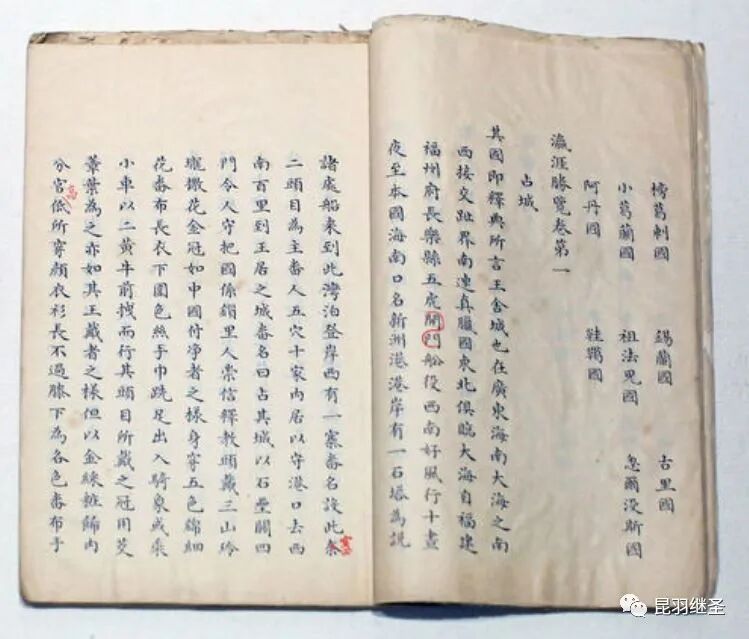 榜葛剌國 錫蘭國 古里國
小葛蘭國 祖法兒國 忽爾沒斯國
阿丹國 國
瀛涯勝覽卷第一
占城
其國即釋典所言王舍城也在廣東海南大海之南
西接交趾界南連真臘國東北俱臨大海自福建
福州府長樂縣五虎開門船役西南好風行十晝
夜至本國海南口名新洲港港岸有一石塔為說
諸處船来到此灣泊登岸西有一寨番名設此奈
二頭目為主番人五穴十家内居以守港口去西
南百里到王居之城番名曰占其城以石壘開四
門令人守把國係鎖里人崇信釋教頭戴三山玲
瓏撒花金冠如中國付净者之樣身穿五色綿細
花番布長衣下圍色絲手巾跣足出入騎象或乘
小車以二黃牛前拽而行其頭目所戴之冠用茭
葦葉為之亦如其王戴者之樣但以金綵粧飾内
分官高低所穿顏衣衫長不過膝下為各色番布手
昆羽继圣